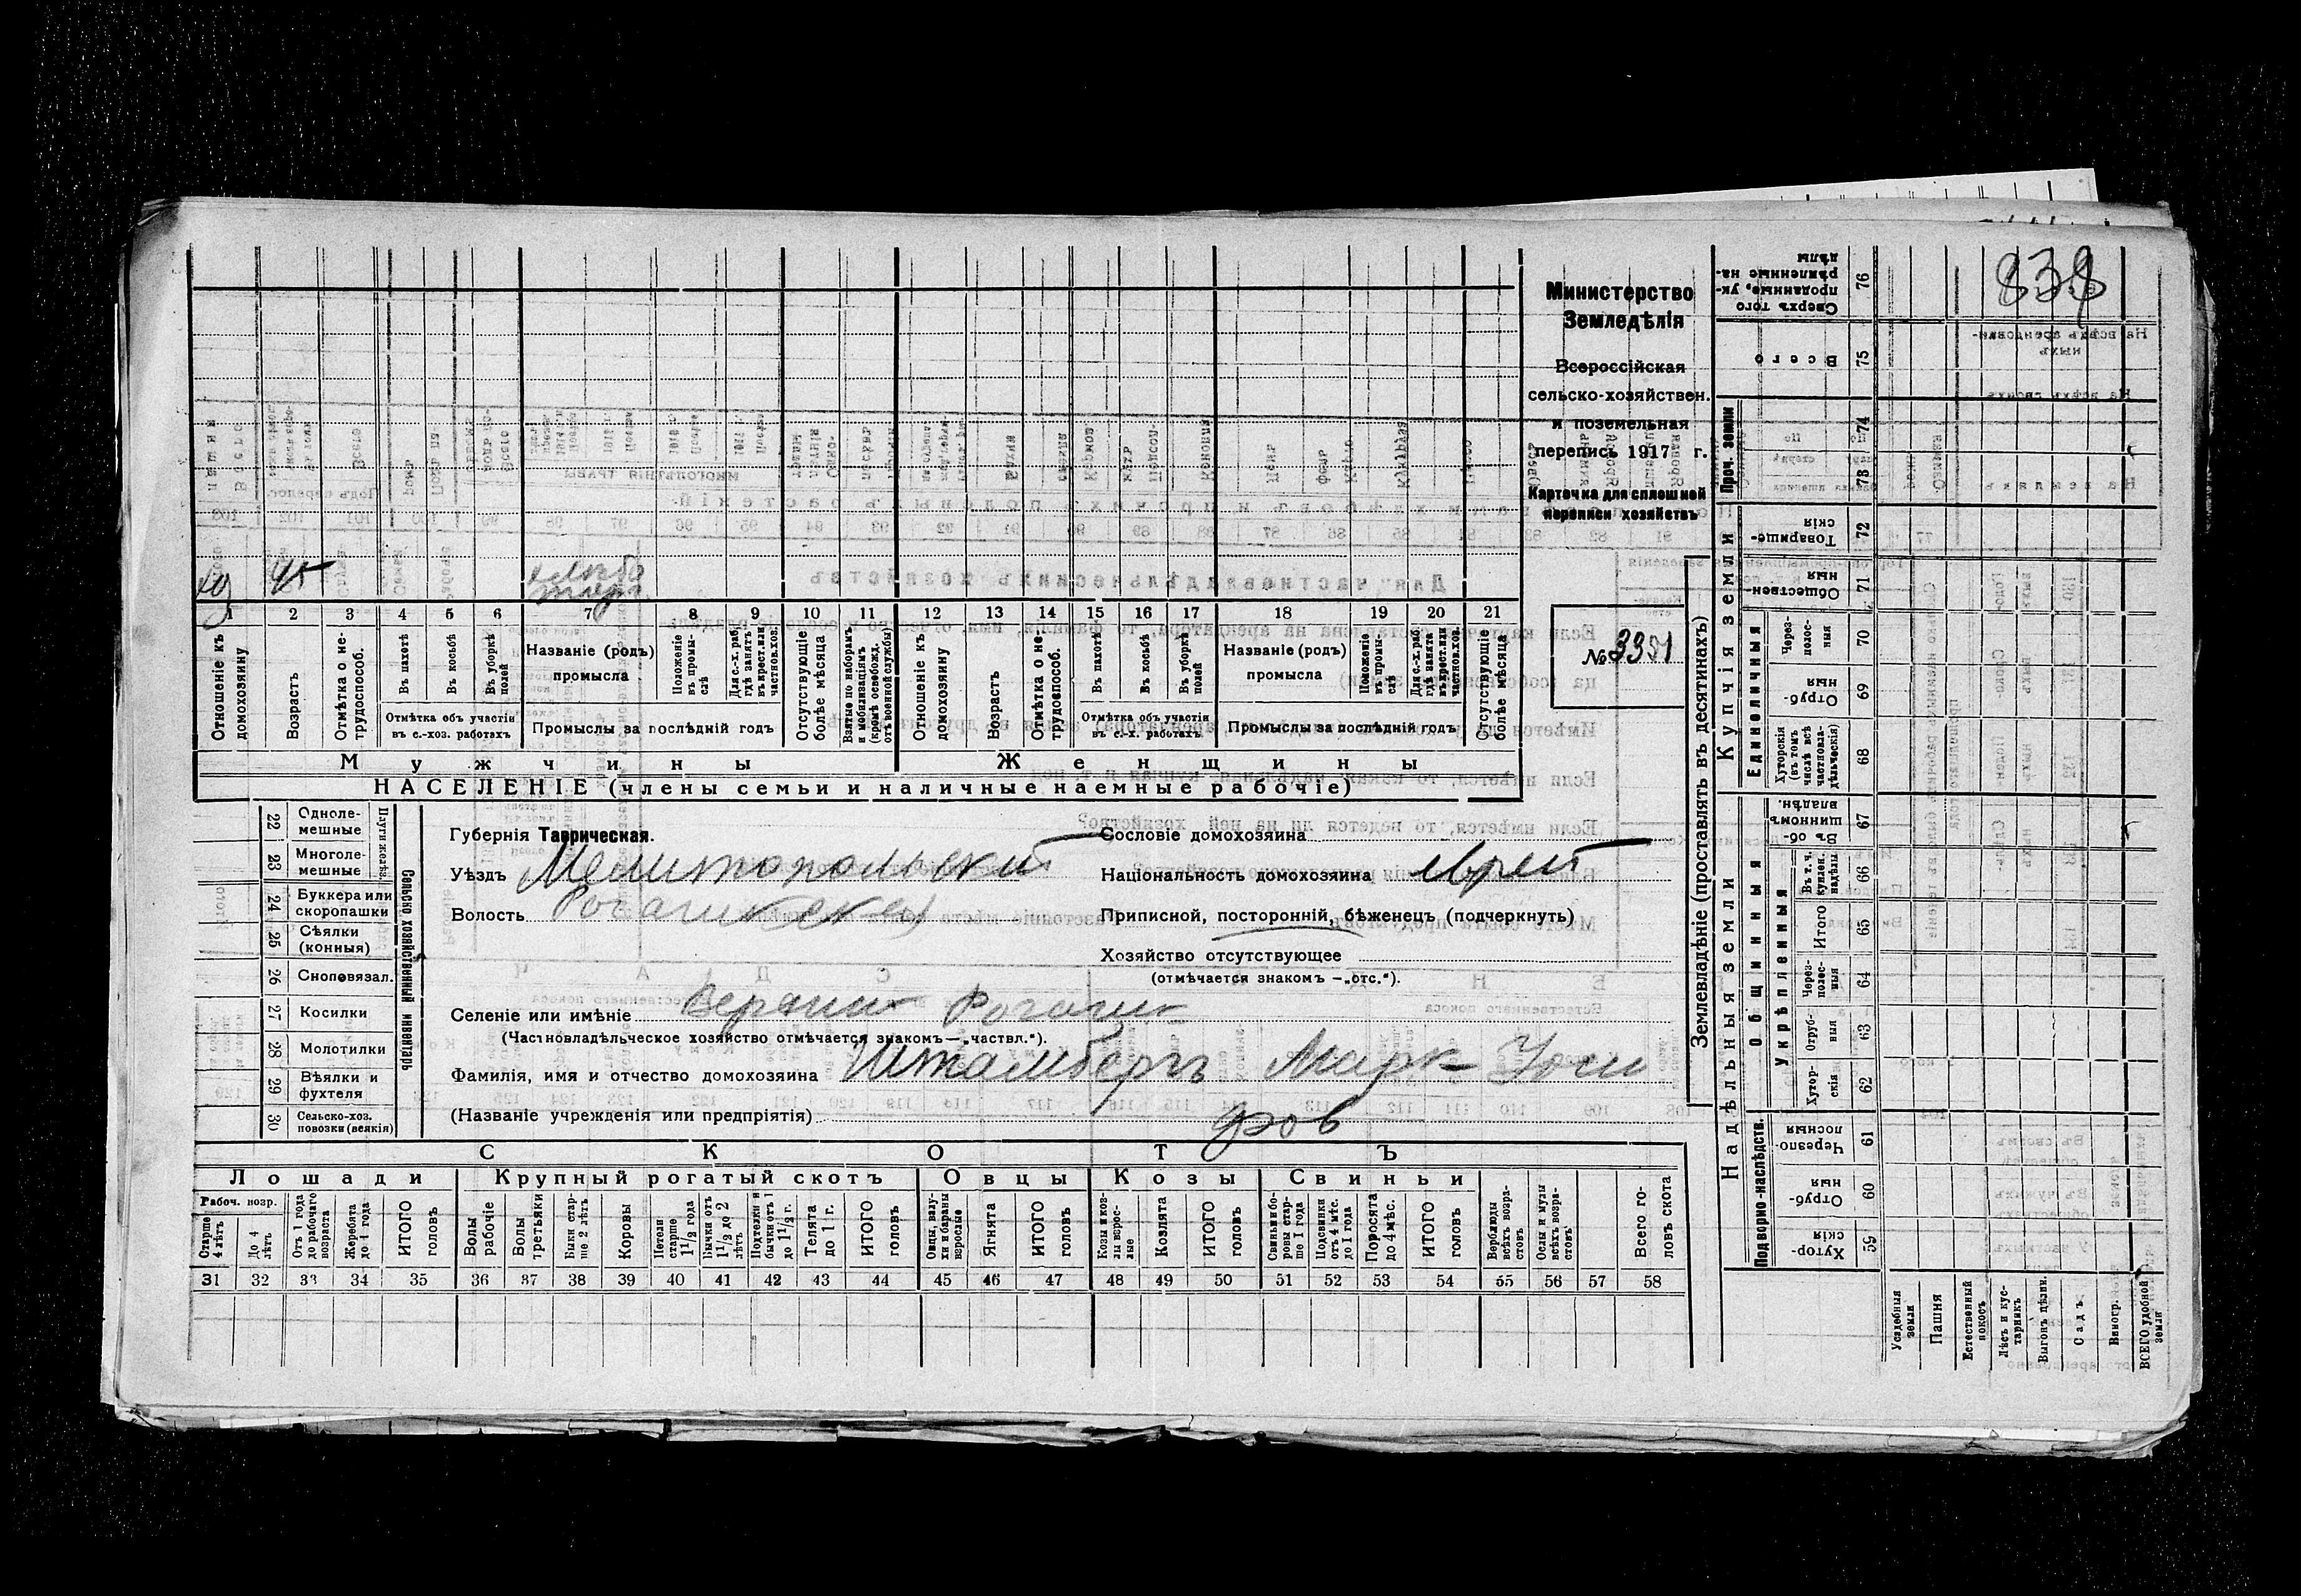 838
Министерство
Земледѣлія
Всероссійская
сельско-хозяйствен.
и поземельная
перепись 1917 г.
Карточка для сплошной
переписи хозяйствъ
№ 3391
45
1 2 3 4 5 6 7 8 9 10 11 12 13 14 15 16 17 18 19 20 21
Отношеніе къ домохозяину
Возрастъ
Отмѣтка о не-трудоспособ.
Въ пахотѣ
Въ косьбѣ
Въ уборкѣ полей
Отмѣтка объ участіи въ с.-хоз. работахъ
Названіе (родъ) промысла
Положеніе въ промы-слѣ
Для с.-х. раб. гдѣ занятъ въ крест. или частнов. хоз.
Промыслы за послѣдній годъ
Отсутствующіе болѣе мѣсяца
Взятые по наборамъ и мобилизаціямъ (кромѣ освобожд. отъ военной службы)
Отношеніе къ домохозяину
Возрастъ
Отмѣтка о не-трудоспособ.
Въ пахотѣ
Въ косьбѣ
Въ уборкѣ полей
Отмѣтка объ участіи въ с.-х. работахъ
Названіе (родъ) промысла
Положеніе въ промы-слѣ
Для с.-х. раб. гдѣ занята въ крест. или частнов. хоз.
Промыслы за послѣдній годъ
Отсутствующіе болѣе мѣсяца
Мужчины
Женщины
НАСЕЛЕНІЕ (члены семьи и наличные наемные рабочіе)
22 Одноле-мешные
23 Многоле-мешные
Плуги желѣз.
24 Буккера или скоропашки
25 Сѣялки (конныя)
26 Сноповязал.
27 Косилки
28 Молотилки
29 Вѣялки и фухтеля
30 Сельско-хоз. повозки (всякія)
Сельско хозяйственный инвентарь
Губернія Таврическая.
Уѣздъ Мелитопольскій
Волость Рогачикская
Селеніе или имѣніе Верхній Рогачик
(Частновладѣльческое хозяйство отмѣчается знакомъ—„частвл.“).
Фамилія, имя и отчество домохозяина Штамбергъ Марк Иоси
фов
(Названіе учрежденія или предпріятія)
Сословіе домохозяина
Національность домохозяина еврей
Приписной, посторонній, бѣженецъ (подчеркнуть)
Хозяйство отсутствующее
(отмѣчается знакомъ —„отс.“).
СКОТЪ
Лошади
Крупный рогатый скотъ
Овцы
Козы
Свиньи
Рабоч. возр.
Старше 4 лѣтъ
До 4 лѣтъ
Отъ 1 года до рабочаго возраста
Жеребята до 1 года
ИТОГО головъ
Волы рабочіе
Волы третьяки
Быки стар-ше 2 лѣтъ
Коровы
Нетели старше 1 1/2 года
Бычки отъ 1 1/2 до 2 лѣтъ
Подтелки и бычки отъ 1 до 1 1/2 г.
Телята до 1 г.
ИТОГО головъ
Овцы, валу-хи и бараны взрослые
Ягнята
ИТОГО головъ
Козы и коз-лы взрос-лые
Козлята
ИТОГО головъ
Свиньи и бо-ровы стар-ше 1 года
Подсвинки отъ 4 мѣс. до 1 года
Поросята до 4 мѣс.
ИТОГО головъ
Верблюды всѣхъ возра-стовъ
Ослы и мулы всѣхъ возра-стовъ
Всего го-ловъ скота
31 32 33 34 35 36 37 38 39 40 41 42 43 44 45 46 47 48 49 50 51 52 53 54 55 56 57 58
Землевладѣніе (проставлять въ десятинахъ)
Надѣльныя земли
Купчія земли
Проч. земли
Подворно-наслѣдств.
Общинныя
Укрѣпленныя
Единоличныя
Хутор-скія 59
Отруб-ныя 60
Черезпо-лосныя 61
Хутор-скія 62
Отруб-ныя 63
Через-полос-ныя 64
Итого 65
Въ т. ч. куплен. надѣлы 66
Въ об-щинномъ владѣн. 67
Хуторскія (въ томъ числѣ всѣ частновла-дѣльческія) 68
Отруб-ныя 69
Через-полос-ныя 70
Обществен-ныя 71
Товарище-скія 72
73
74
Всего 75
Сверхъ того проданные, ук-рѣпленные на-дѣлы 76
Усадебныя земли
Пашня
Естественный покосъ
Лѣсъ и кус-тарникъ
Выгонъ цѣлин.
Садъ
Виногр.
ВСЕГО удобной земли